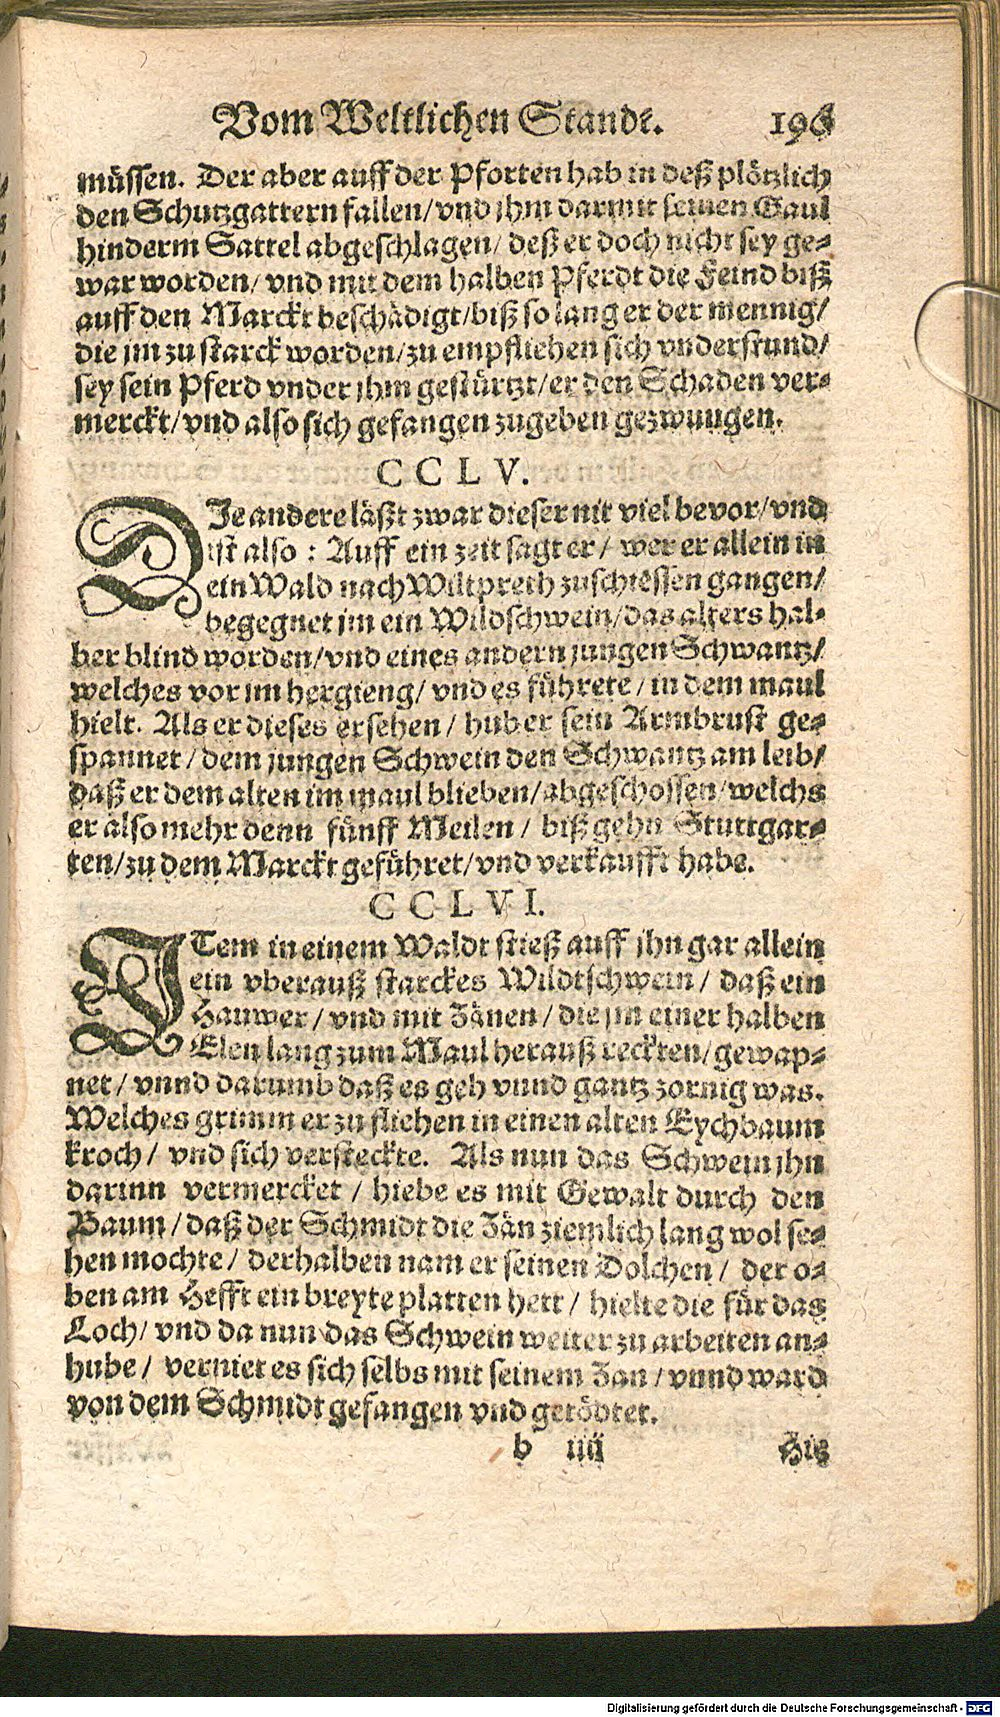 Vom Weltlichen Standt. 196
müssen. Der aber auff der Pforten hab in deß plötzlich
den Schutzgattern fallen/vnd jhm darmit seinen Gaul
hinderm Sattel abgeschlagen/ deß er doch nicht sey ge-
war worden/ vnd mit dem halben Pferdt die Feind biß
auff den Marckt beschädigt/biß so lang er der mennig/
die jm zu starck worden/zu empfliehen sich vnderstund/
sey sein Pferd vnder jhm gestürtzt/er den Schaden ver-
merckt/vnd also sich gefangen zugeben gezwungen.
CCLV.
DJe andere läßt zwar dieser nit viel bevor/vnd
ist also : Auff ein zeit sagt er/ wer er allein in
ein Wald nach Wiltpreth zuschiessen gangen/
begegnet jm ein Wildschwein/das alters hal-
ber blind worden/vnd eines andern jungen Schwantz/
welches vor jm hergieng/ vnd es führete/ in dem maul
hielt. Als er dieses ersehen/ hub er sein Armbrust ge-
spannet/dem jungen Schwein den Schwantz am leib/
daß er dem alten im maul blieben/abgeschossen/welchs
er also mehr denn fünff Meilen/ biß gehn Stuttgar-
ten/zu dem Marckt geführet/vnd verkaufft habe.
CCLVI.
JTem in einem Waldt stieß auff jhn gar allein
ein vberauß starckes Wildtschwein/ daß ein
Hauwer/ vnd mit Zänen/ die jm einer halben
Elen lang zum Maul herauß reckten/gewap-
net/ vnnd darumb daß es geh vnnd gantz zornig was.
Welches grimm er zu fliehen in einen alten Eychbaum
kroch/ vnd sich versteckte. Als nun das Schwein jhn
darinn vermercket/ hiebe es mit Gewalt durch den
Baum/daß der Schmidt die Zän ziemlich lang wol se-
hen mochte/ derhalben nam er seinen Dolchen/ der o-
ben am Hefft ein breyte platten hett/ hielte die für das
Loch/ vnd da nun das Schwein weiter zu arbeiten an-
hube/ verniet es sich selbs mit seinem Zan/ vnnd ward
von dem Schmidt gefangen vnd getödtet.
b iiij Hie
Digitalisierung gefördert durch die Deutsche Forschungsgemeinschaft - DFG